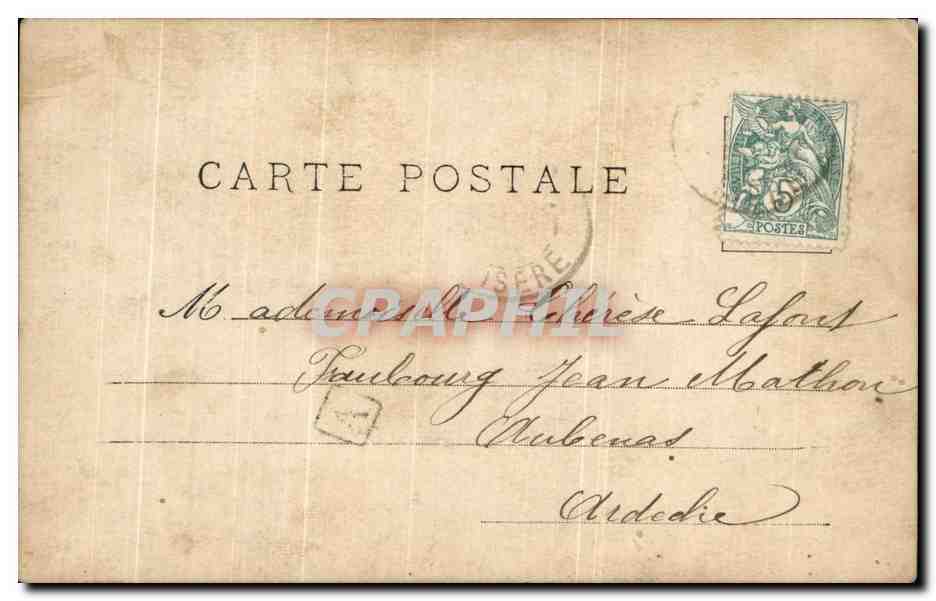 CARTE POSTALE
5
POSTES
ISÈRE
CPAPHIL
Mademoiselle Thérèse Lafont
Faubourg Jean Mathon
A
Aubenas
Ardèche